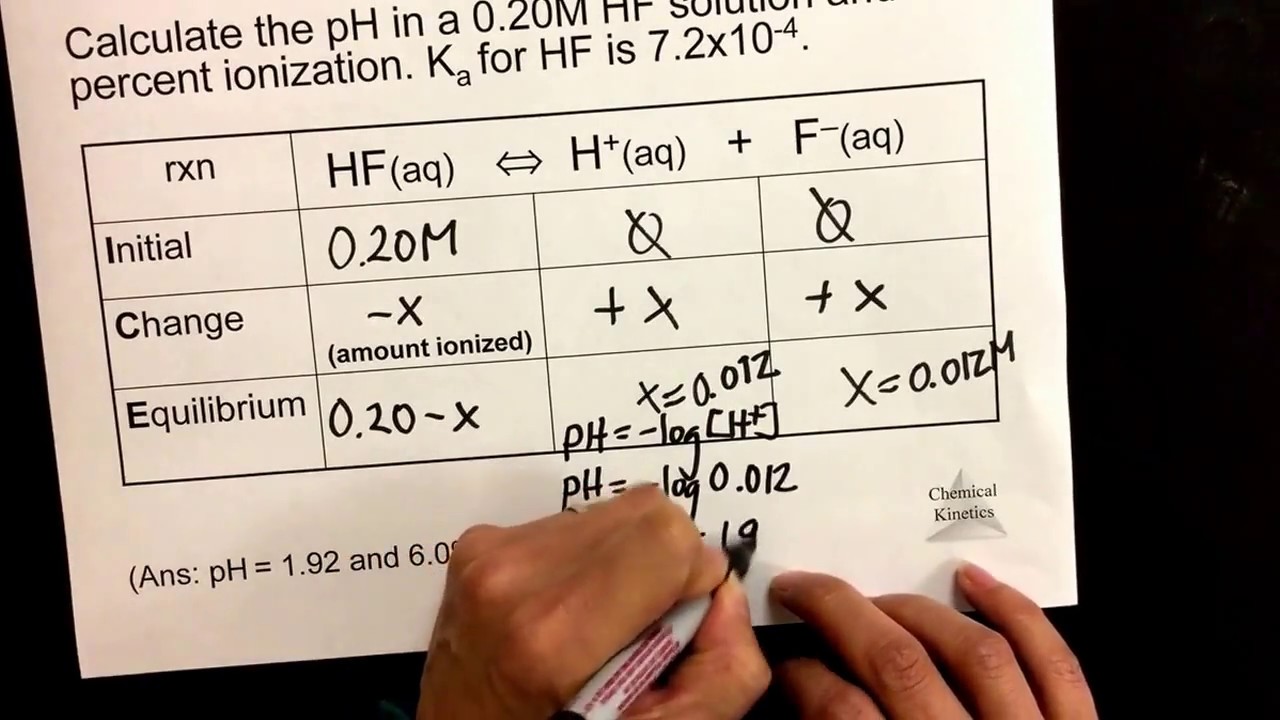 Calculate the pH in a 0.20M HF solution and
percent ionization. Kₐ for HF is 7.2x10⁻⁴.
rxn HF(aq) ⇔ H⁺(aq) + F⁻(aq)
Initial 0.20M 0 0
Change -x + x + x
(amount ionized)
Equilibrium 0.20-x x=0.012 x=0.012M
pH=-log[H⁺]
pH=-log 0.012
Chemical
Kinetics
(Ans: pH = 1.92 and 6.0